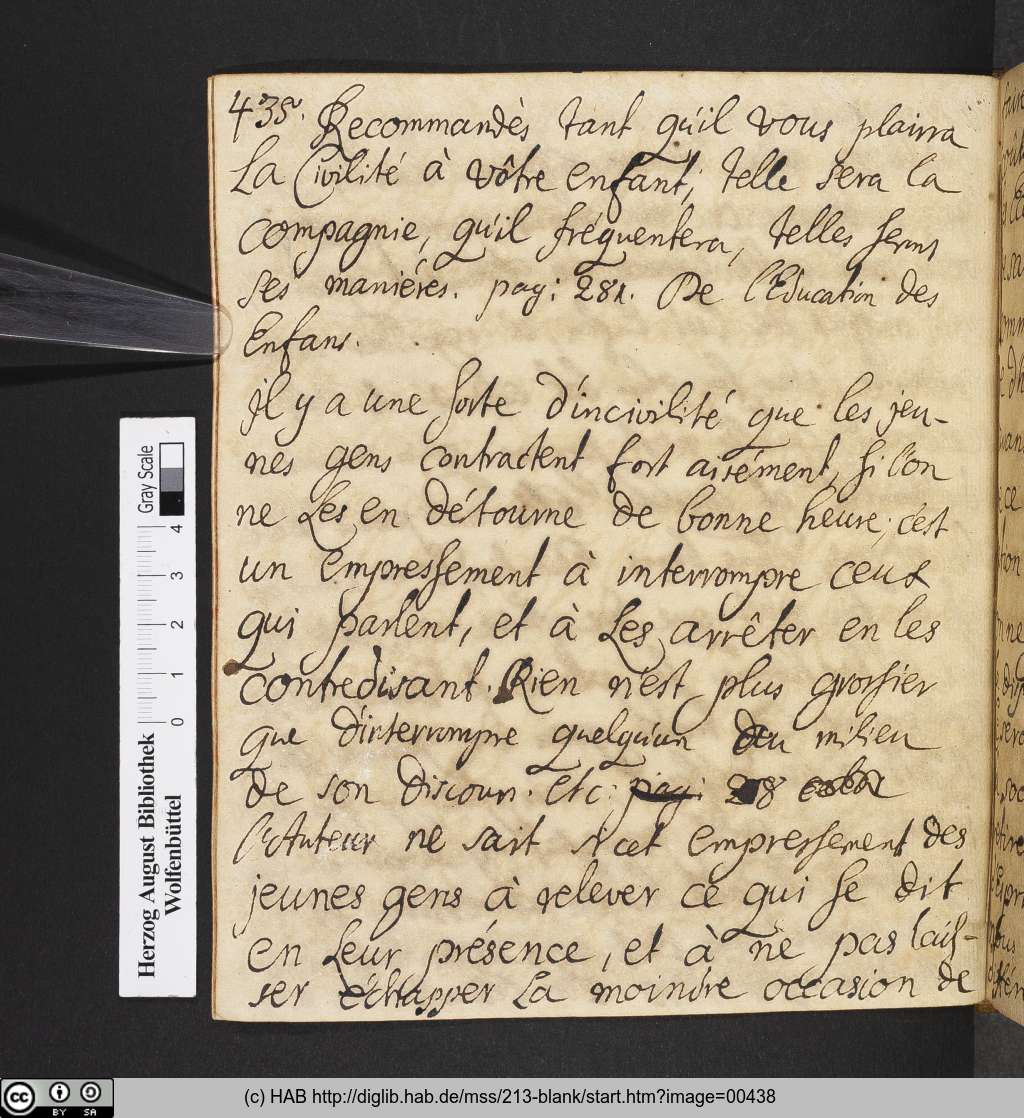 435. Recommandès tant qu'il vous plairra
La Civilité à vôtre enfant; telle sera la
compagnie, qu'il fréquentera, telles serons
ses maniéres. pag: 281. De l'Education des
Enfans.
Il y a une sorte d'incivilité que les jeu-
nes gens contractent fort aisément, si l'on
ne Les en détourne de bonne heure; c'est
un empressement à interrompre ceux
qui parlent, et à Les arrêter en les
contredisant. Rien n'est plus grossier
que d'interrompre quelqu'un au milieu
de son discours. etc:
l'Auteur ne sait si cet empressement des
jeunes gens à relever ce qui se dit
en Leur présence, et à ne pas laiss-
ser échapper La moindre occasion de
Gray Scale
0 1 2 3 4
Herzog August Bibliothek
Wolfenbüttel
cc BY SA
(c) HAB http://diglib.hab.de/mss/213-blank/start.htm?image=00438